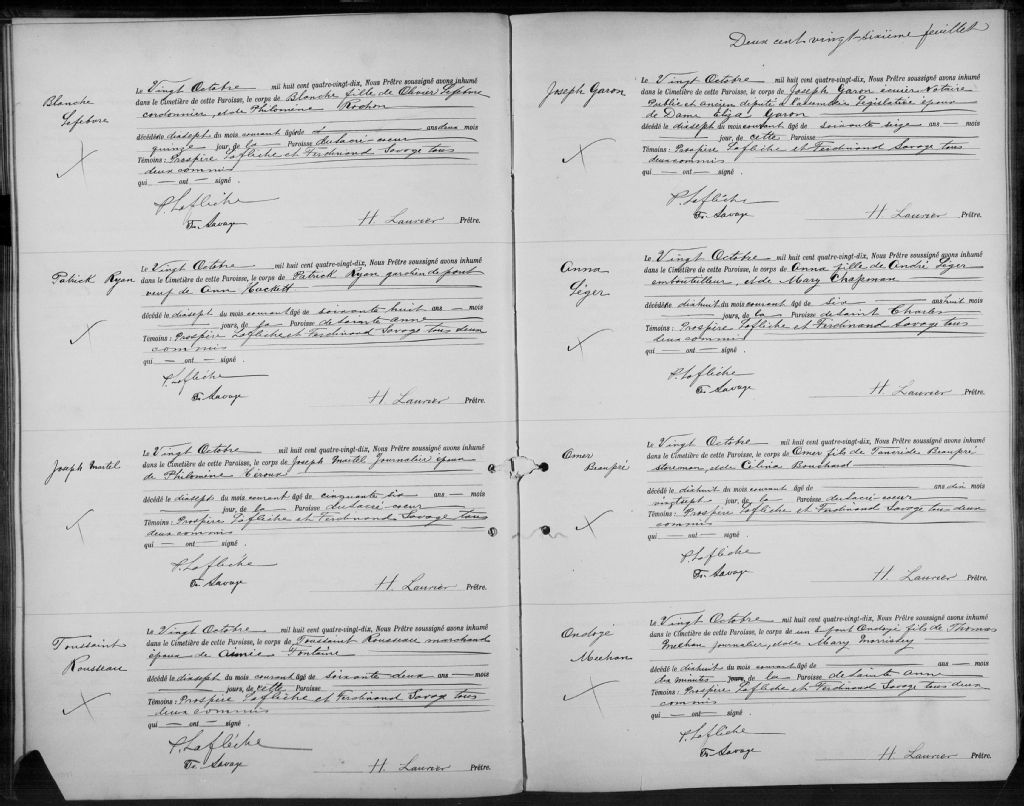 Blanche
Lefebvre
Le Vingt Octobre mil huit cent quatre-vingt-dix, Nous Prêtre soussigné avons inhumé
dans le Cimetière de cette Paroisse, le corps de Blanche fille de Olivier Lefebvre
cordonnier, et de Philomène Rochon
décédée diasept du mois courant âgée de ans deux mois
quinze jour, de la Paroisse du Sacré-coeur
Témoins : Prospère Laflèche et Ferdinand Savage tous
deux commis
qui — ont — signé .
P. Laflèche
Fr. Savage
H. Laurier Prêtre.
Patrick Ryan
Le Vingt Octobre mil huit cent quatre-vingt-dix, Nous Prêtre soussigné avons inhumé
dans le Cimetière de cette Paroisse, le corps de Patrick Ryan gardien de pont
veuf de Ann Hackett
décédé le diasept du mois courant âgé de soixante huit ans — mois
jours, de la Paroisse de Sainte Anne
Témoins : Prospère Laflèche et Ferdinand Savage tous deux
commis
qui — ont — signé .
P. Laflèche
Fr. Savage
H. Laurier Prêtre.
Joseph Martel
Le Vingt Octobre mil huit cent quatre-vingt-dix, Nous Prêtre soussigné avons inhumé
dans le Cimetière de cette Paroisse, le corps de Joseph Martel Journalier époux
de Philomène Héroux
décédé le diasept du mois courant âgé de cinquante six ans — mois
jour, de la Paroisse du Sacré-coeur
Témoins : Prospère Laflèche et Ferdinand Savage tous
deux commis
qui — ont — signé .
P. Laflèche
Fr. Savage
H. Laurier Prêtre.
Toussaint
Rousseau
Le Vingt Octobre mil huit cent quatre-vingt-dix, Nous Prêtre soussigné avons inhumé
dans le Cimetière de cette Paroisse, le corps de Toussaint Rousseau marchand
époux de Aimie Fontaine
décédé le diasept du mois courant âgé de soixante deux ans — mois
jours, de cette Paroisse
Témoins : Prospère Laflèche et Ferdinand Savage tous
deux commis
qui — ont — signé .
P. Laflèche
Fr. Savage
H. Laurier Prêtre.
Deux cent vingt-sixième feuillet
Joseph Garon
Le Vingt Octobre mil huit cent quatre-vingt-dix, Nous Prêtre soussigné avons inhumé
dans le Cimetière de cette Paroisse, le corps de Joseph Garon écuier Notaire
Public et ancien deputé à l'assemblée Législative époux
de Dame Eliza Garon
décédé le diasept du mois courant âgé de soixante seize ans — mois
jour, de cette Paroisse
Témoins : Prospère Laflèche et Ferdinand Savage tous
deux commis
qui — ont — signé .
P. Laflèche
Fr. Savage
H. Laurier Prêtre.
Anna
Léger
Le Vingt Octobre mil huit cent quatre-vingt-dix, Nous Prêtre soussigné avons inhumé
dans le Cimetière de cette Paroisse, le corps de Anna fille de André Léger
embouteilleur, et de Mary Chapman
décédée le diahuit du mois courant âgé de six ans huit mois
jours, de la Paroisse de Saint Charles
Témoins : Prospère Laflèche et Ferdinand Savage tous
deux commis
qui — ont — signé .
P. Laflèche
Fr. Savage
H. Laurier Prêtre.
Omer
Beaupré
Le Vingt Octobre mil huit cent quatre-vingt-dix, Nous Prêtre soussigné avons inhumé
dans le Cimetière de cette Paroisse, le corps de Omer fils de Tancrède Beaupré
storeman, et de Célina Bouchard
décédé le diahuit du mois courant âgé de ans dix mois
vingtsept jour, de la Paroisse du Sacré-coeur
Témoins : Prospère Laflèche et Ferdinand Savage tous deux
commis
qui — ont — signé .
P. Laflèche
Fr. Savage
H. Laurier Prêtre.
Ondozé
Meehan
Le Vingt Octobre mil huit cent quatre-vingt-dix, Nous Prêtre soussigné avons inhumé
dans le Cimetière de cette Paroisse, le corps de un Enfant Ondozé fils de Thomas
Meehan journalier, et de Mary Morrissey
décédé le diahuit du mois courant âgé de ans — mois
dix minutes jours, de la Paroisse de Sainte Anne
Témoins : Prospère Laflèche et Ferdinand Savage tous deux
commis
qui — ont — signé .
P. Laflèche
Fr. Savage
H. Laurier Prêtre.